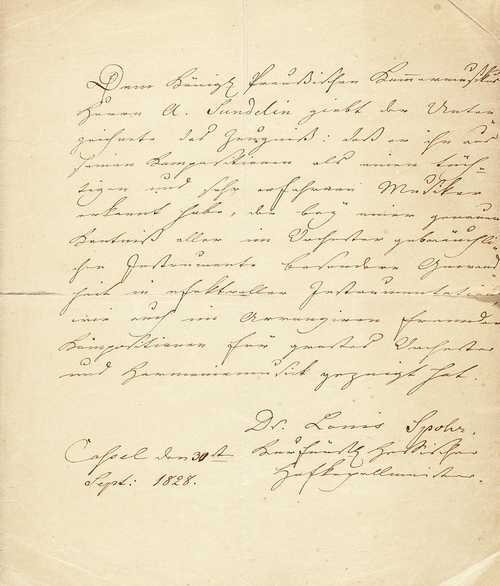 Dem Königl. Preußischen Kammermusikus
Herrn A. Sundelin giebt der Unter
zeichnete das Zeugniß: daß er ihn aus
seinen Kompositionen als einen tüch-
tigen und sehr erfahrnen Musiker
erkannt habe, der bey einer genauen
Kentniß aller im Orchester gebräuchli-
chen Instrumente besondere Gewand
heit in efektvoller Instrumentation
wie auch im Arrangiren fremder
Kompositionen für großes Orchester
und Harmoniemusik gezeigt hat.
Dr. Louis Spohr.
Cassel den 30st Kurfürstl. Hessischer
Sept: 1828. Hofkapellmeister.